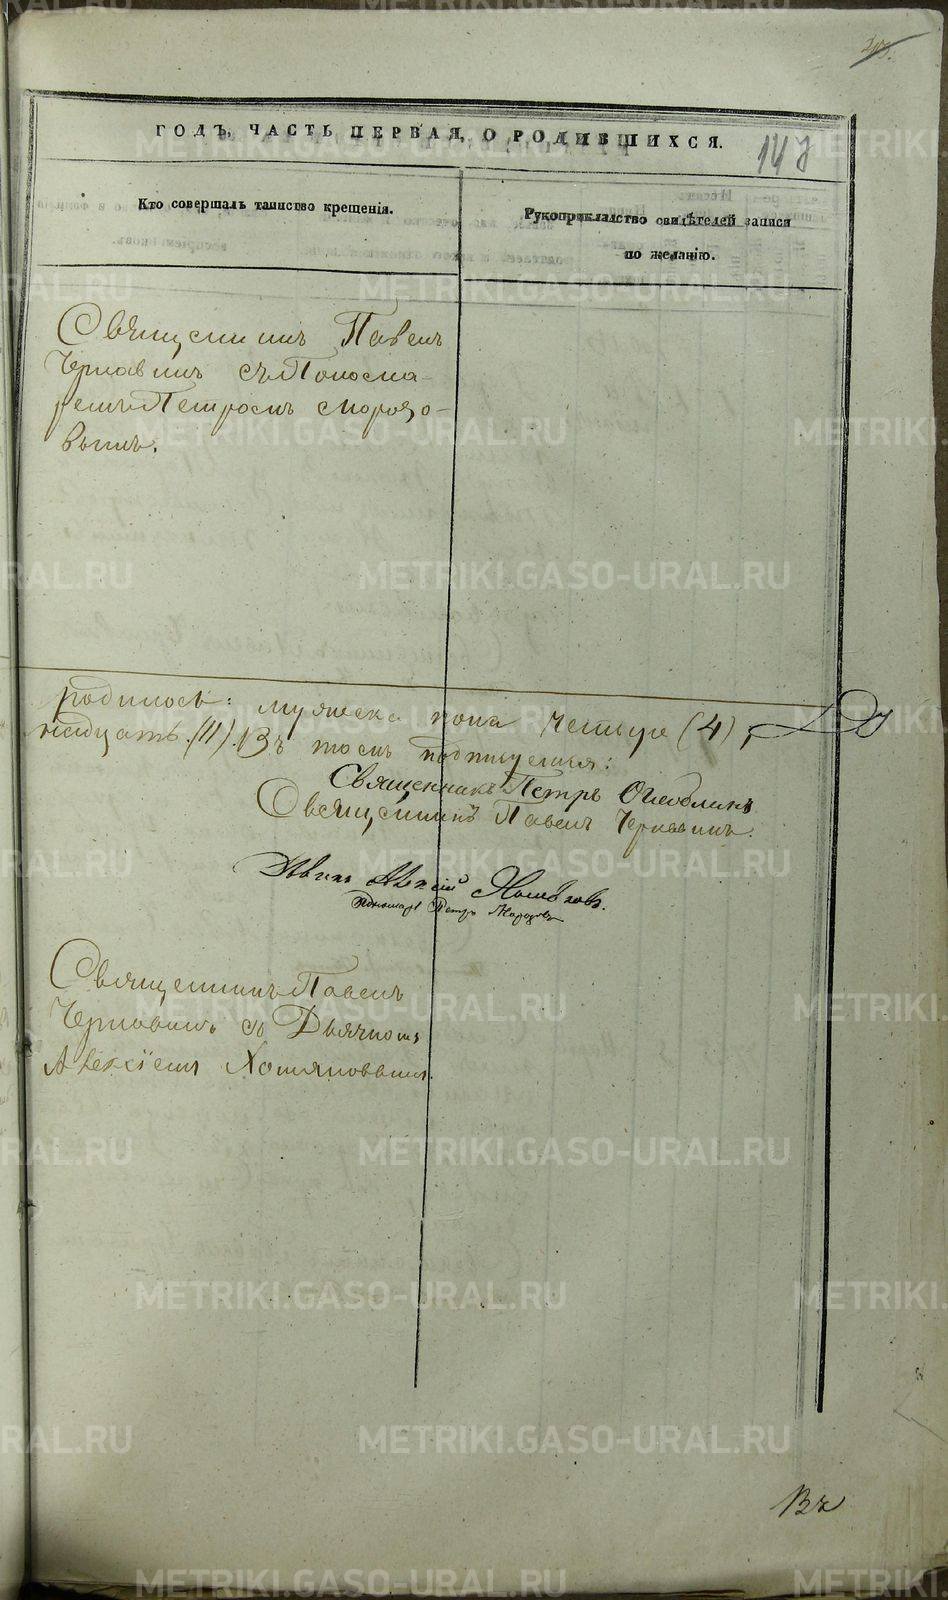 ГОДЪ, ЧАСТЬ ПЕРВАЯ, О РОДИВШИХСЯ.
147
Кто совершалъ таинство крещенія.
Рукоприкладство свидѣтелей записи
по желанію.
Священникъ Павелъ
Чернавинъ съ Поно­ма-
ремъ Петромъ Морозо-
вымъ.
родилось: мужеска пола четыре (4),
надцать (11). Въ томъ подписуемся:
Священникъ Петръ Оглоблинъ
Священникъ Павелъ Чернавинъ.
Дьячекъ Алексій Хомяковъ.
Пономарь Петръ Морозовъ
Священникъ Павелъ
Чернавинъ съ Дьячкомъ
Алексіемъ Хомяковымъ.
Въ
METRIKI.GASO-URAL.RU